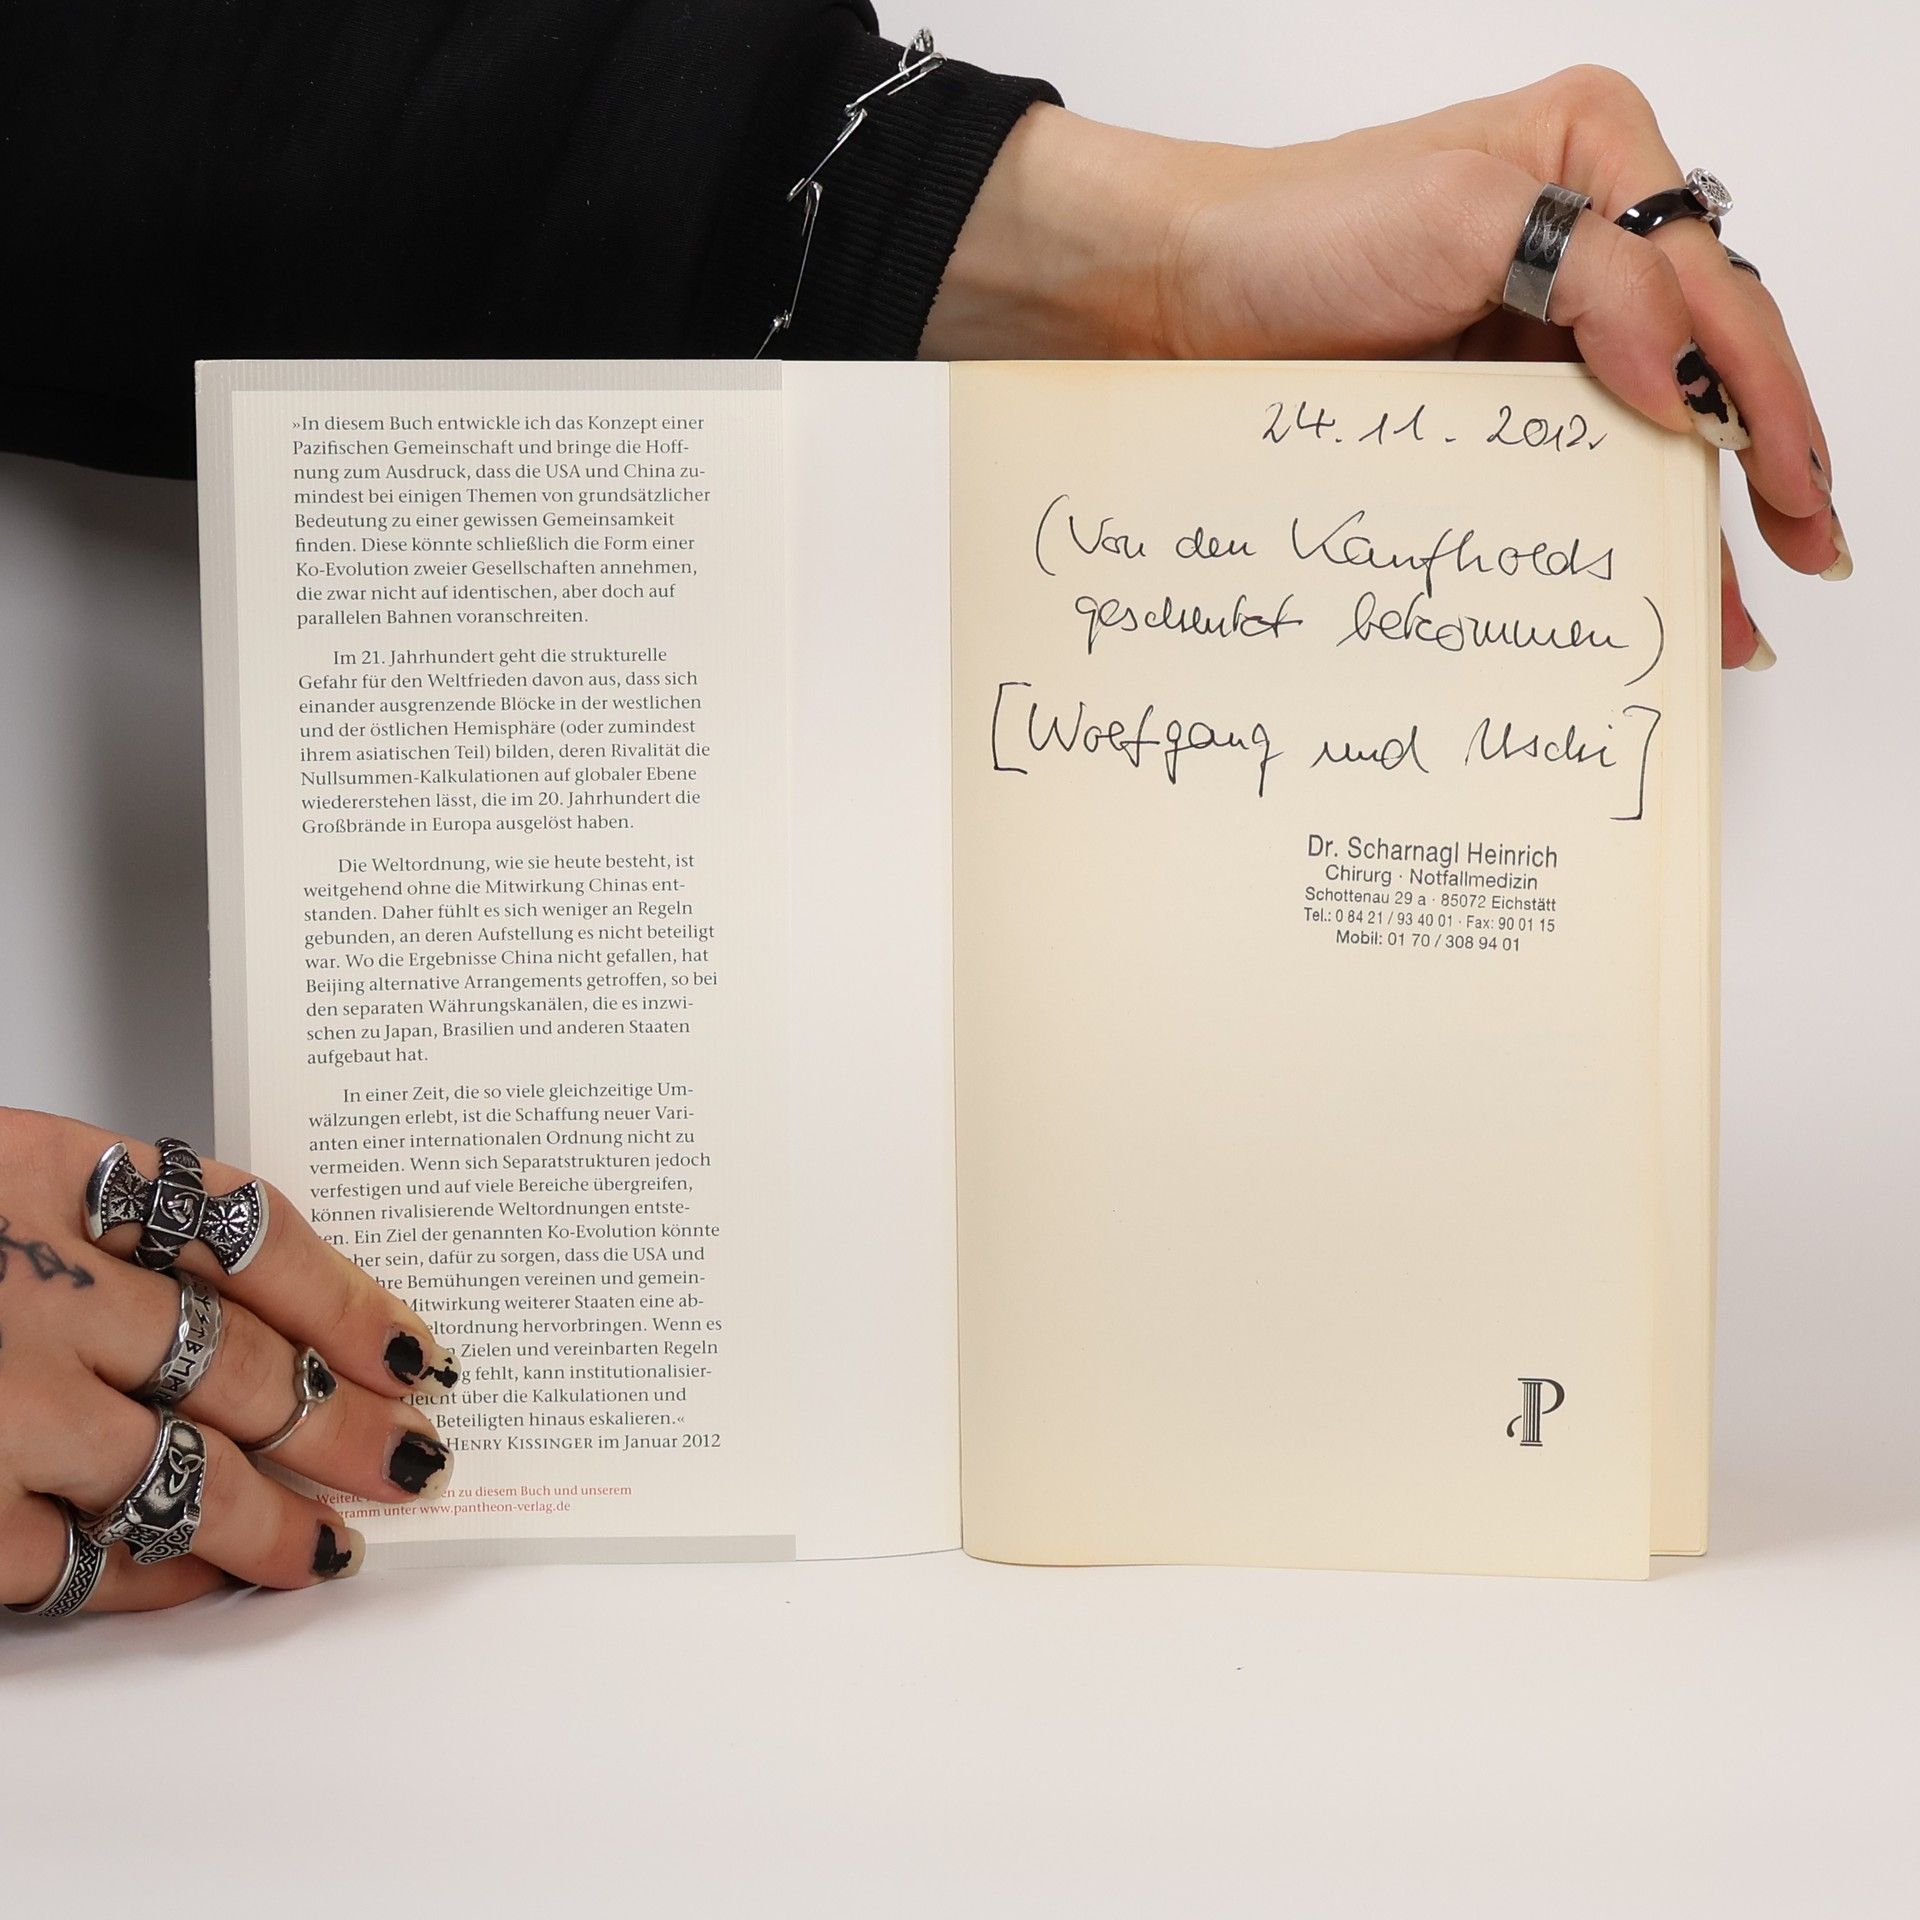 »In diesem Buch entwickle ich das Konzept einer
Pazifischen Gemeinschaft und bringe die Hoff-
nung zum Ausdruck, dass die USA und China zu-
mindest bei einigen Themen von grundsätzlicher
Bedeutung zu einer gewissen Gemeinsamkeit
finden. Diese könnte schließlich die Form einer
Ko-Evolution zweier Gesellschaften annehmen,
die zwar nicht auf identischen, aber doch auf
parallelen Bahnen voranschreiten.
Im 21. Jahrhundert geht die strukturelle
Gefahr für den Weltfrieden davon aus, dass sich
einander ausgrenzende Blöcke in der westlichen
und der östlichen Hemisphäre (oder zumindest
ihrem asiatischen Teil) bilden, deren Rivalität die
Nullsummen-Kalkulationen auf globaler Ebene
wiedererstehen lässt, die im 20. Jahrhundert die
Großbrände in Europa ausgelöst haben.
Die Weltordnung, wie sie heute besteht, ist
weitgehend ohne die Mitwirkung Chinas ent-
standen. Daher fühlt es sich weniger an Regeln
gebunden, an deren Aufstellung es nicht beteiligt
war. Wo die Ergebnisse China nicht gefallen, hat
Beijing alternative Arrangements getroffen, so bei
den separaten Währungskanälen, die es inzwi-
schen zu Japan, Brasilien und anderen Staaten
aufgebaut hat.
In einer Zeit, die so viele gleichzeitige Um-
wälzungen erlebt, ist die Schaffung neuer Vari-
anten einer internationalen Ordnung nicht zu
vermeiden. Wenn sich Separatstrukturen jedoch
verfestigen und auf viele Bereiche übergreifen,
können rivalisierende Weltordnungen entste-
en. Ein Ziel der genannten Ko-Evolution könnte
her sein, dafür zu sorgen, dass die USA und
hre Bemühungen vereinen und gemein-
Mitwirkung weiterer Staaten eine ab-
eltordnung hervorbringen. Wenn es
n Zielen und vereinbarten Regeln
g fehlt, kann institutionalisier-
leicht über die Kalkulationen und
Beteiligten hinaus eskalieren.«
HENRY KISSINGER im Januar 2012
Weitere en zu diesem Buch und unserem
gramm unter www.pantheon-verlag.de
24.11.2012
(Von den Kaufholds
geschenkt bekommen)
[Wolfgang und Uschi]
Dr. Scharnagl Heinrich
Chirurg · Notfallmedizin
Schottenau 29 a · 85072 Eichstätt
Tel.: 0 84 21 / 93 40 01 · Fax: 90 01 15
Mobil: 01 70 / 308 94 01
P